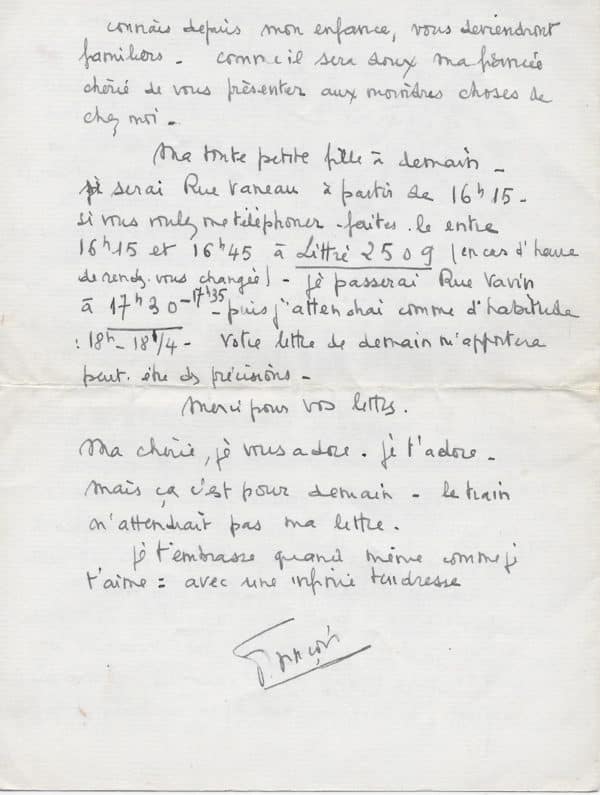 connais depuis mon enfance, vous deviendront
familiers - comme il sera doux ma fiancée
chérie de vous présenter aux moindres choses de
chez moi -
Ma toute petite fille à demain -
je serai Rue Vaneau à partir de 16h15 -
si vous voulez me téléphoner - faites-le entre
16h15 et 16h45 à Littré 2509 (en cas d'heure
de rendez-vous changée) - je passerai Rue Vavin
à 17h30-17h35 - puis j'attendrai comme d'habitude
: 18h - 18h1/4 - Votre lettre de demain m'apportera
peut-être des précisions -
Merci pour vos lettres.
Ma chérie, je vous adore. je t'adore -
mais ça c'est pour demain - le train
n'attendrait pas ma lettre.
je t'embrasse quand même comme je
t'aime : avec une infinie tendresse
François